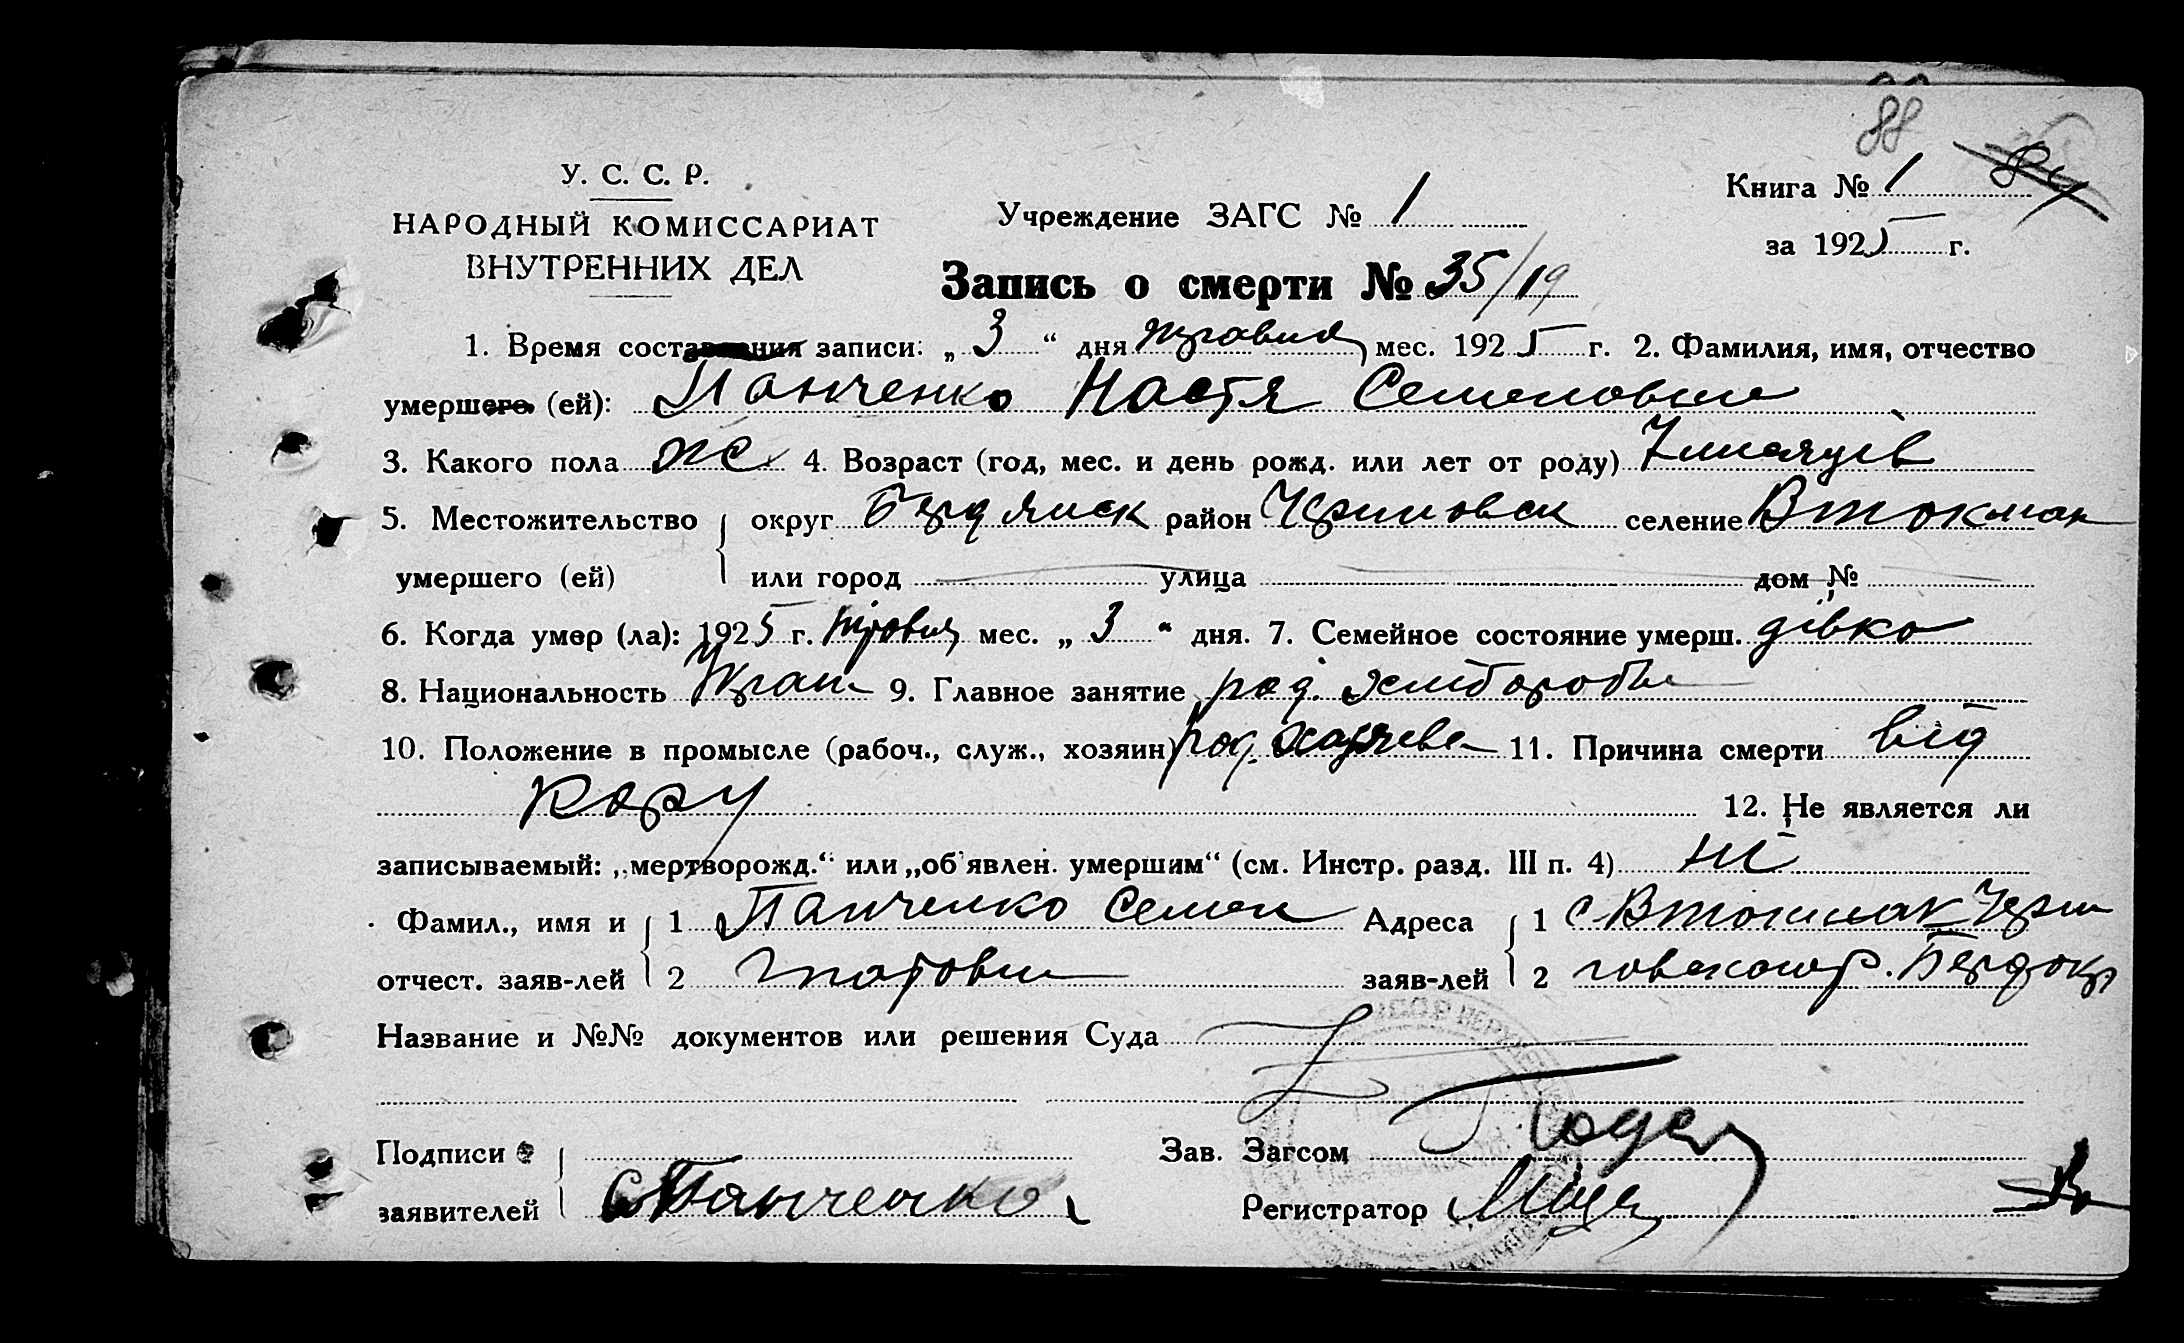 88
У. С. С. Р.
НАРОДНЫЙ КОМИССАРИАТ
ВНУТРЕННИХ ДЕЛ
Учреждение ЗАГС № 1
Книга № 1 84
за 1925 г.
Запись о смерти № 35/19
1. Время составления записи: „ 3 “ дня травня мес. 1925 г. 2. Фамилия, имя, отчество
умершего (ей): Панченко Настя Семеновна
3. Какого пола ж 4. Возраст (год, мес. и день рожд. или лет от роду) 7 місяців
5. Местожительство округ Бердянск район Черниговск селение Втокмак
умершего (ей) или город улица дом №
6. Когда умер (ла): 1925 г. травня мес. „ 3 “ дня. 7. Семейное состояние умерш. дівка
8. Национальность Украин 9. Главное занятие род. Хлебороб
10. Положение в промысле (рабоч., служ., хозяин) род. хазяева 11. Причина смерти від
кору 12. Не является ли
записываемый: „мертворожд.“ или „об'явлен. умершим“ (см. Инстр. разд. III п. 4) ні
Фамил., имя и 1 Панченко Семен Адреса 1 с Втокмак Черни
отчест. заяв-лей 2 заяв-лей 2 Бердокр
Название и №№ документов или решения Суда
Подписи Зав. Загсом
заявителей С Панченко Регистратор